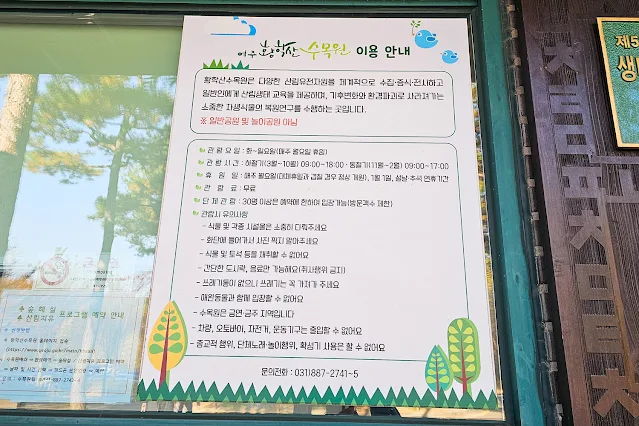 여주 황학산 수목원 이용 안내
황학산수목원은 다양한 산림유전자원을 체계적으로 수집·증식·전시하고
일반인에게 산림생태 교육을 제공하며, 기후변화와 환경파괴로 사라져가는
소중한 자생식물의 복원연구를 수행하는 곳입니다.
※ 일반공원 및 놀이공원 아님
· 관 람 요 일 : 화~일요일(매주 월요일 휴원)
· 관 람 시 간 : 하절기(3월~10월) 09:00~18:00 · 동절기(11월~2월) 09:00~17:00
· 휴 원 일 : 매주 월요일(대체휴일과 겹칠 경우 정상 개원), 1월 1일, 설날·추석 연휴기간
· 관 람 료 : 무료
· 단 체 관 람 : 30명 이상은 예약에 한하여 입장 가능(방문객수 제한)
· 관람시 유의사항
- 식물 및 각종 시설물은 소중히 다뤄주세요
- 화단에 들어가서 사진 찍지 말아주세요
- 식물 및 토석 등을 채취할 수 없어요
- 간단한 도시락, 음료만 가능해요(취사행위 금지)
- 쓰레기통이 없으니 쓰레기는 꼭 가져가 주세요
- 애완동물과 함께 입장할 수 없어요
- 수목원은 금연·금주 지역입니다
- 차량, 오토바이, 자전거, 운동기구는 출입할 수 없어요
- 종교적 행위, 단체노래·놀이행위, 확성기 사용은 할 수 없어요
문의전화 : 031)887-2741~5
숲 해 설
산림치유 프로그램 예약 안내
887-2741~5
제5
생